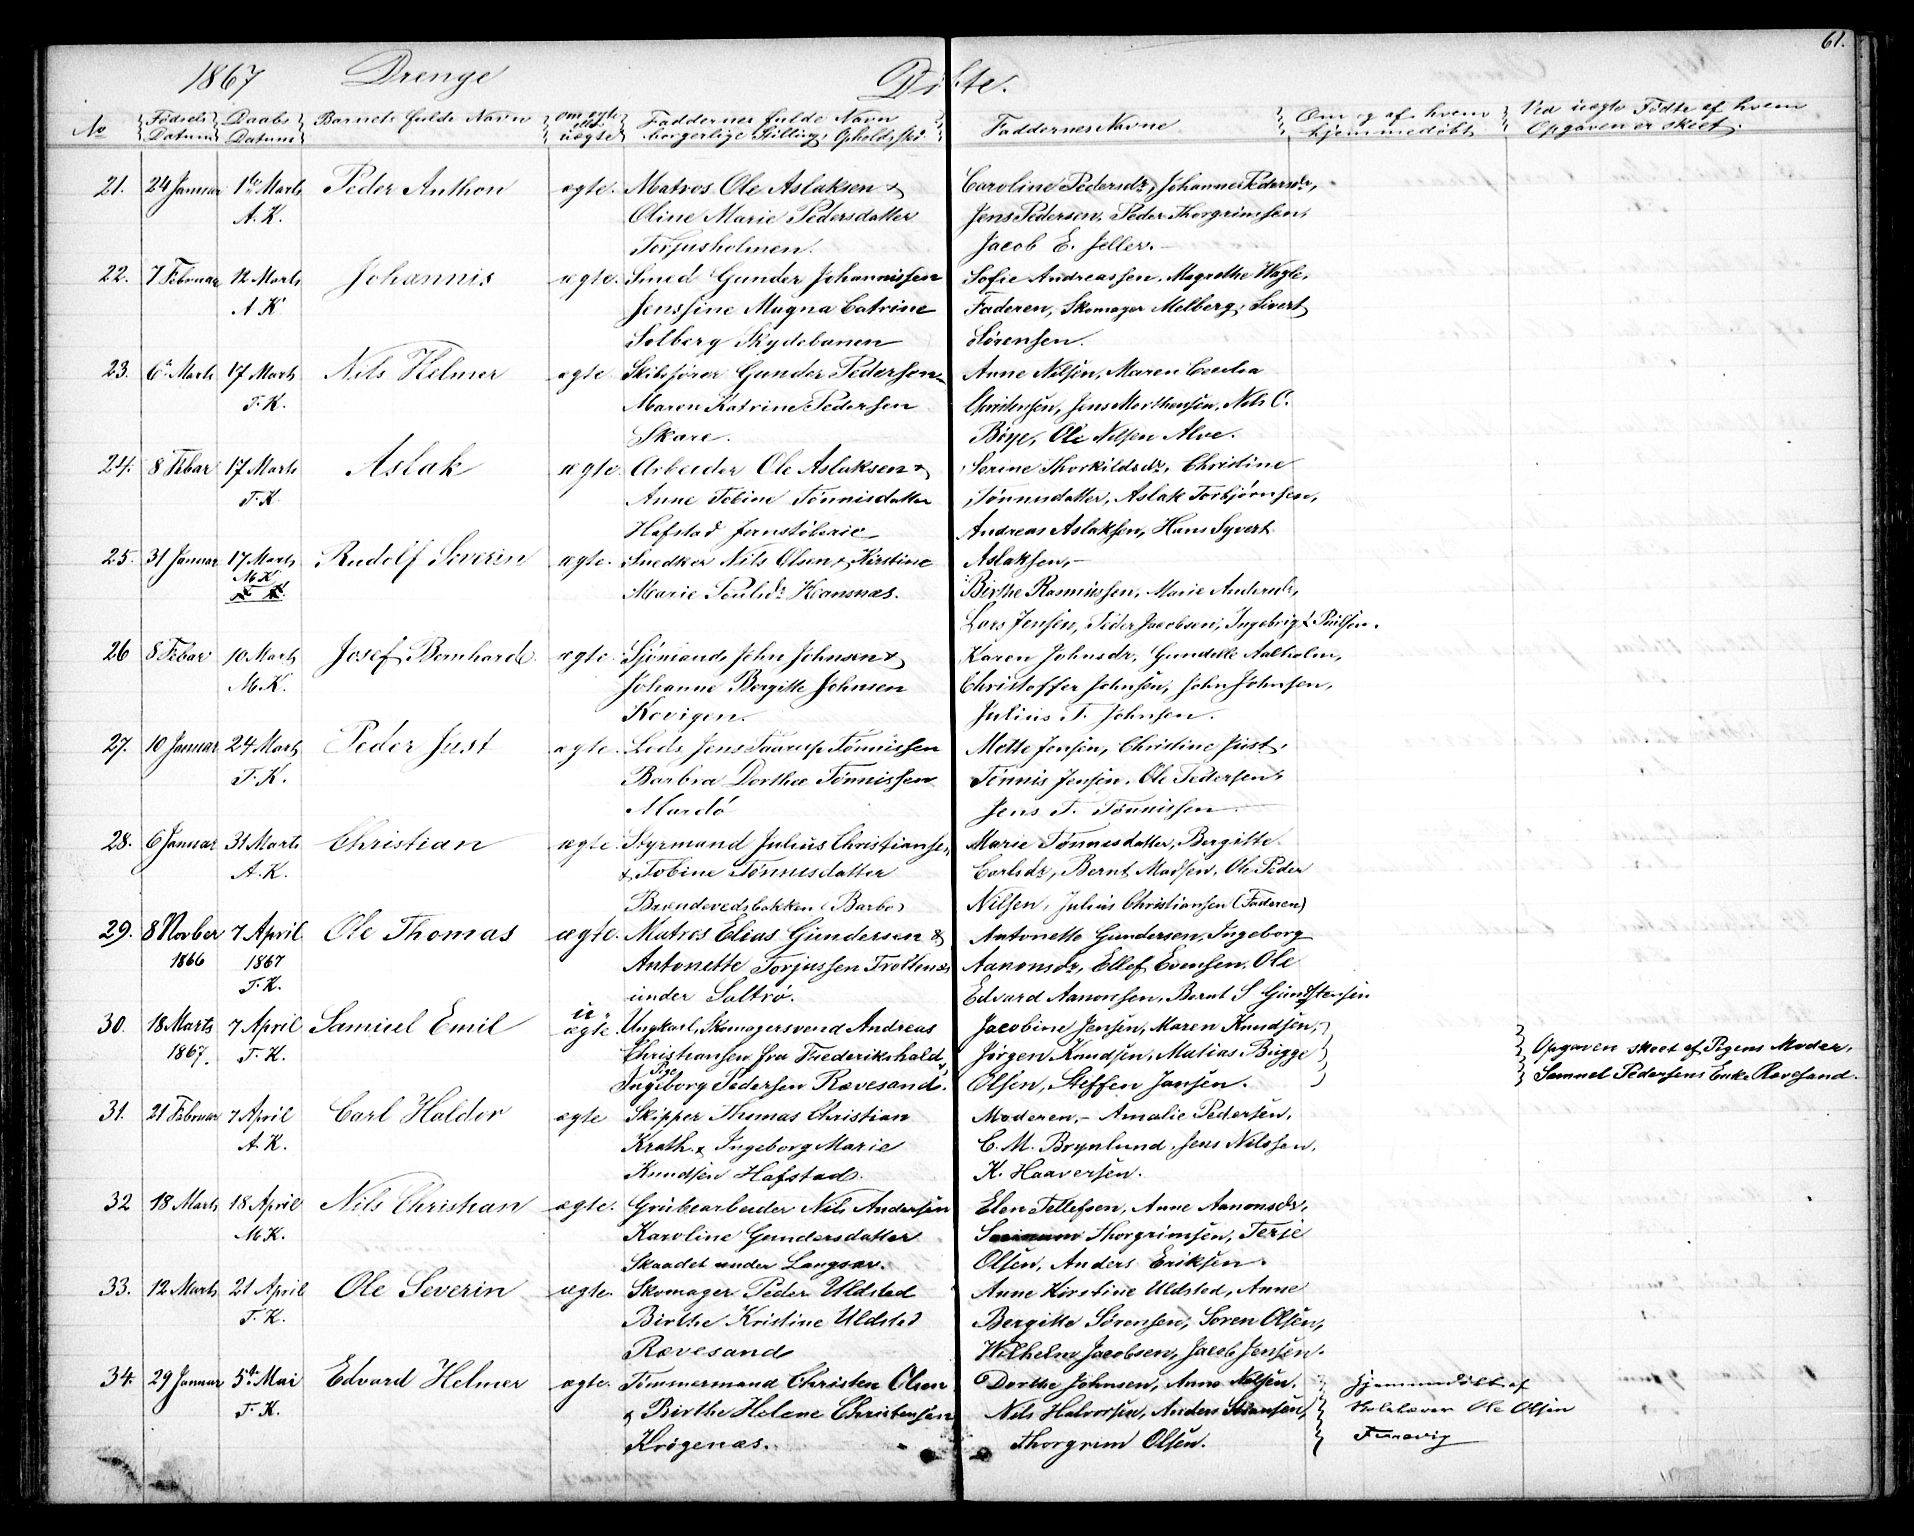 61.
1867 Drenge Ditto.
No Fødsels Datum Daabs Datum Barnets fulde Navn om ægte eld. uægte Faddernes fulde Navn borgerlige Stilling, Opholdssted Faddernes Navne Om og af hvem hjemmedøbt Ved uægte Fødte af hvem Opgaven er skeet.
21. 24 Januar 1te Marts Peder Anthon ægte. Matros Ole Aslaksen & Caroline Pedersdr, Johanne Pedersdr,
A. K. Oline Marie Pedersdatter Jens Pedersen, Peder Thorgrimsen,
Terjusholmen. Jacob E. Jeller.
22. 7 Februar 12 Marts Johannis ægte. Smed Gunder Johannissen Sofie Andreassen, Magrethe Wagle,
A. K Jenssine Magna Catrine Faderen, Skomager Melberg, Sivert
Solberg Skydebanen Sørensen.
23. 6 Marts 17 Marts Nils Helmer ægte. Skibsfører Gunder Pedersen Anne Nilsen, Maren Cecelia
T. K. Maren Katrine Pedersen Christensen, Jens Morthensen, Nils C.
Skare. Bøye, Ole Nilsen Alve.
24. 8 Febar 17 Marts Aslak ægte. Arbeider Ole Aslaksen & Serine Thorkildsdr, Christine
T. K. Anne Tobine Tønnisdatter Tønnisdatter, Aslak Torbjørnsen,
Hafstad Jernstøberie Andreas Aslaksen, Hans Syvert
25. 31 Januar 17 Marts Rudolf Severin ægte. Snedker Nils Olsen & Kirstine Aslaksen,
M. K Marie Poulsdr Kansnæs. Birthe Rasmussen, Marie Andersdr,
Lars Jensen, Peder Jacobsen, Ingebrigt Paulsen.
26 8 Febar 10 Marts Josef Bernhard ægte. Sjømand John Johnsen & Karen Johnsdr, Gundelle Aalholm,
M. K. Johanne Bergitte Johnsen Christoffer Johnsen, John Johnsen,
Kovigen. Julius T. Johnsen.
27. 10 Januar 24 Marts Peder Just ægte. Lods Jens Taarup Tønnissen Mette Jensen, Christine Just,
T. K. Barbra Dorthea Tønnissen Tønnis Jensen, Ole Pedersen,
Mardø Jens T. Tønnissen
28. 6 Januar 31 Marts Christian ægte. Styrmand Julius Christiansen, Marie Tønnesdatter, Bergitte
A. K. & Tobine Tønnesdatter Carlsdr, Bernt Madsen, Ole Peder
Brændevedsbakken (Barbo) Nilsen, Julius Christiansen (Faderen)
29. 8 Novber 7 April Ole Thomas ægte. Matros Elias Gundersen & Antonette Gundersen, Ingeborg
1866 1867 Antonette Torjussen Trollnæs Aanonsdr, Ellef Evensen, Ole
T. K. under Saltrø. Edvard Aanonsen, Bernt S Gundstensen
30. 18 Marts 7 April Samuel Emil u- ægte Ungkarl, Skomagersvend Andreas Jacobine Jensen, Maren Knudsen,
1867. T. K. Christiansen fra Frederikshald & Jørgen Knudsen, Matias Bugge Opgaven skeet af Pigens Moder,
Pige Ingeborg Pedersen Rævesand. Olsen, Steffen Jansen. Samuel Pedersens Enke Rævesand.
31. 21 Februar 7 April Carl Haldor ægte Skipper Thomas Christian Moderen, - Amalie Pedersen,
A. K. Krath & Ingeborg Marie C. M. Brynlund, Jens Nilssen,
Knudsen Hafstad. K. Haaversen.
32 18 Marts 18 April Nils Christian ægte. Grubearbeider Nils Andersen Elen Tellefsen, Anne Aanonsdr,
M K. Karoline Gundersdatter Thorgrimsen, Terje
Skaadet under Langsæ. Olsen, Anders Eriksen.
33. 12 Marts 21 April Ole Severin ægte. Skomager Peder Uldsted Anne Kirstine Uldsted, Anne
T. K. Birthe Kristine Uldsted Bergitte Sørensen, Soren Olsen,
Rævesand Wilhelm Jacobsen, Jacob Jensen.
34. 29 Januar 5te Mai Edvard Helmer ægte. Tømmermand Christen Olsen Dorthe Johnsen, Anne Nilsen, hjemmedøbt af
T. K. & Birthe Helene Christensen Nils Halvorsen, Anders Hansen, Skolelærer Ole Olsen
Krøgenæs. Thorgrim Olsen. Furavig